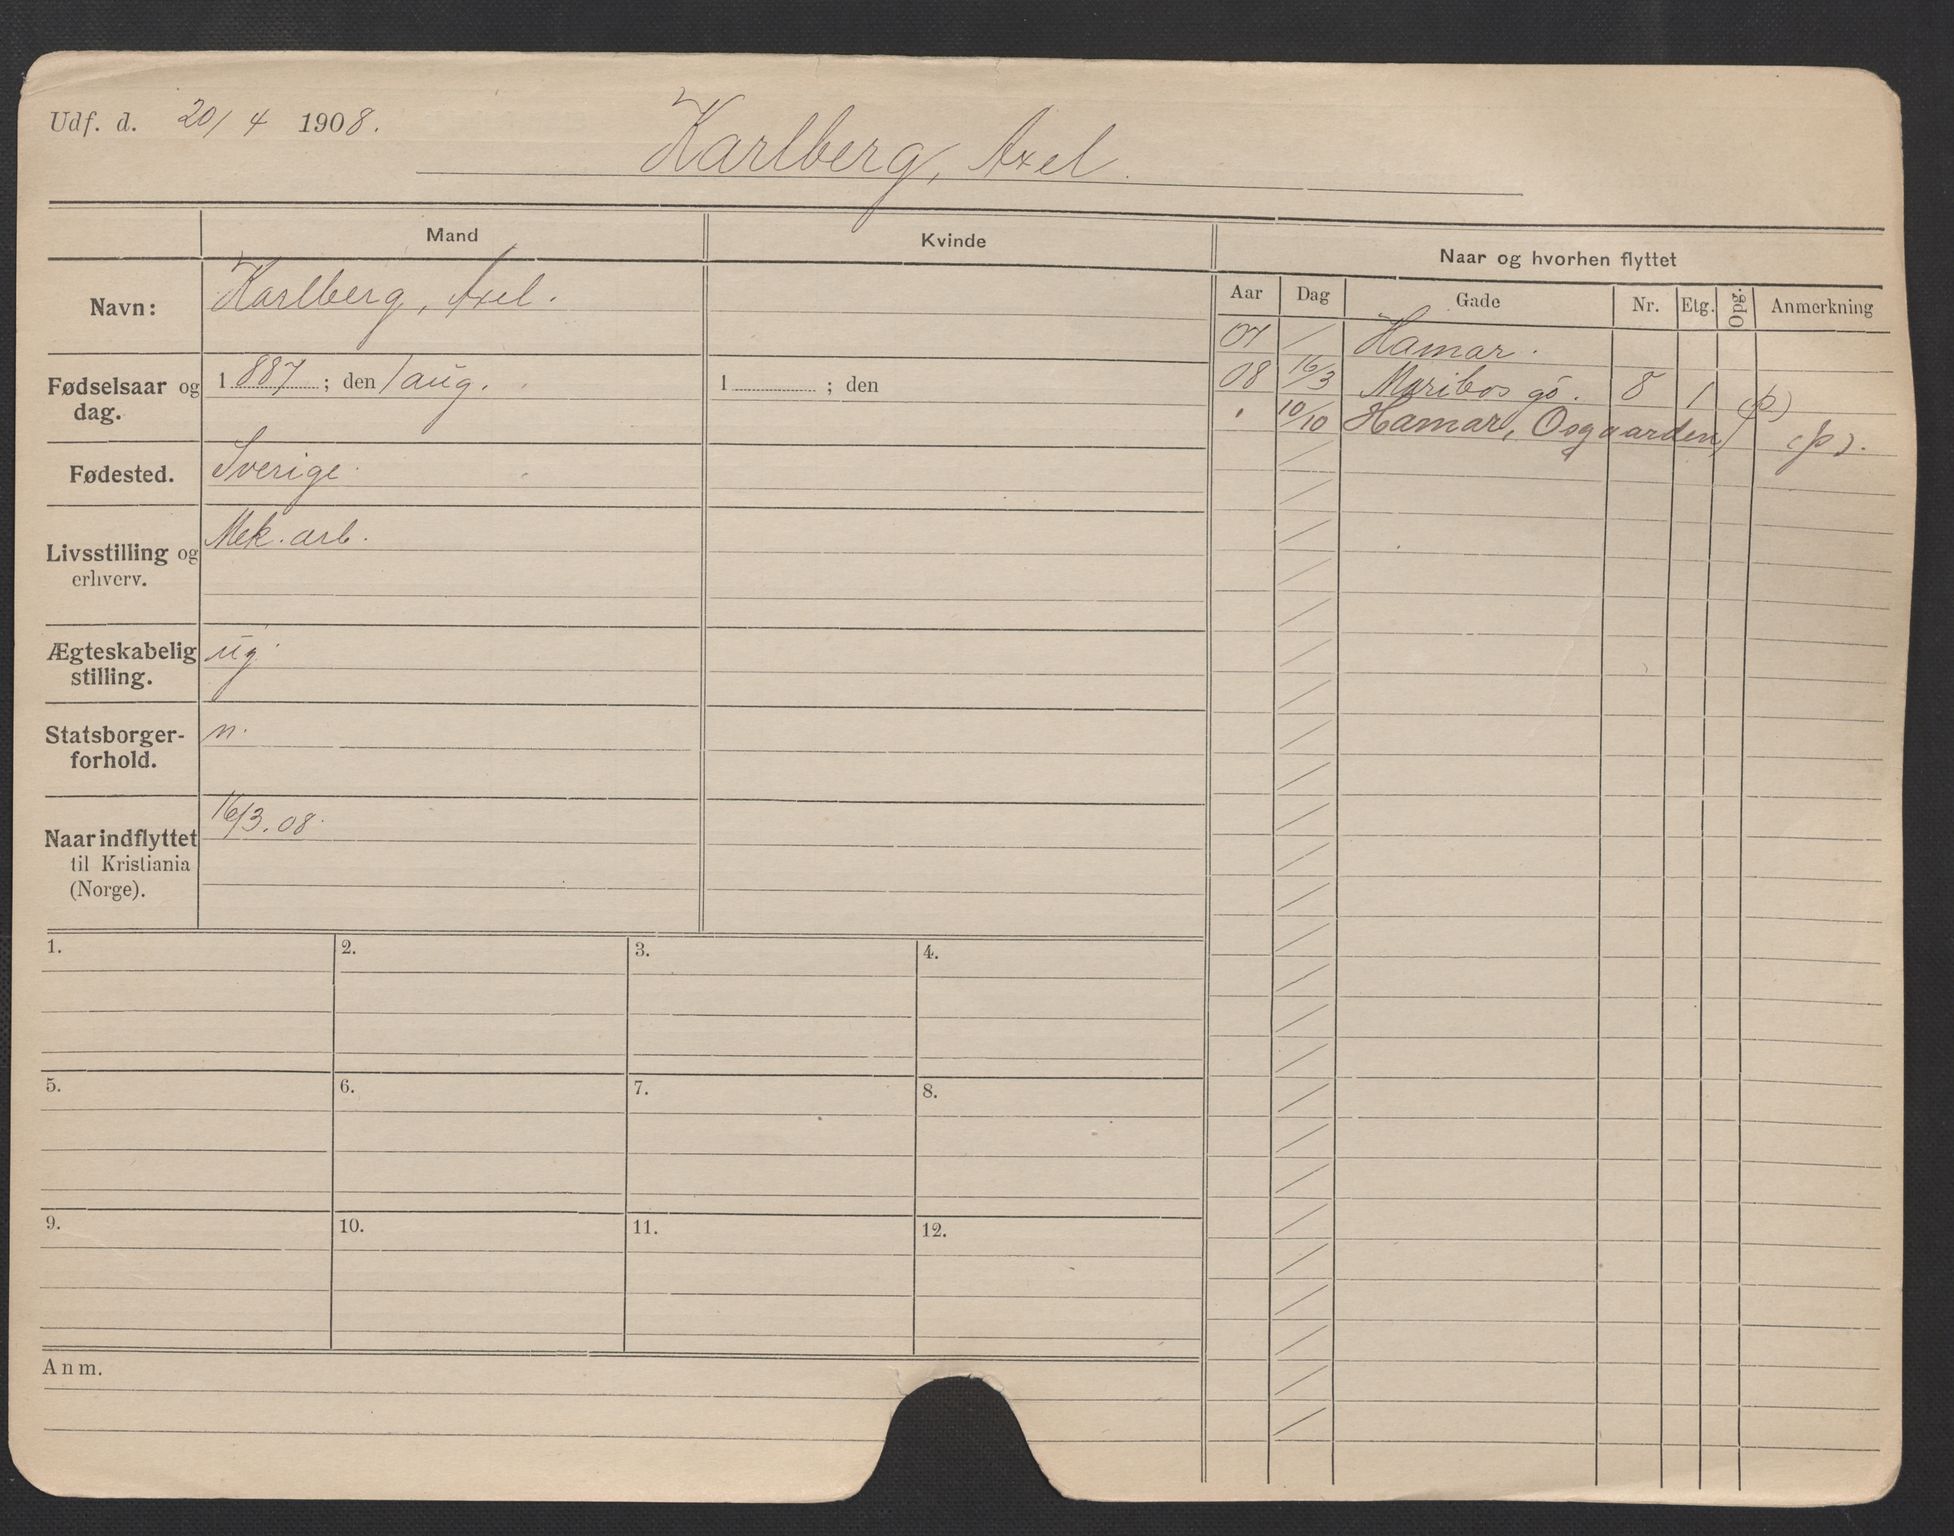 Udf. d. 20/4 1908.
Karlberg, Axel.
Mand
Kvinde
Naar og hvorhen flyttet
Navn:
Karlberg, Axel.
Aar
Dag
Gade
Nr.
Etg.
Opg.
Anmerkning
07 / Hamar.
08 16/3 Maribos g. 8 1 (p)
" 10/10 Hamar, Osgaarden, (p).
Fødselsaar og
dag.
1887 ; den 1 aug.
1 ; den
Fødested.
Sverige.
Livsstilling og
erhverv.
Mek. arb.
Ægteskabelig
stilling.
ug.
Statsborger-
forhold.
n.
Naar indflyttet
til Kristiania
(Norge).
16/3. 08.
1.
2.
3.
4.
5.
6.
7.
8.
9.
10.
11.
12.
Anm.